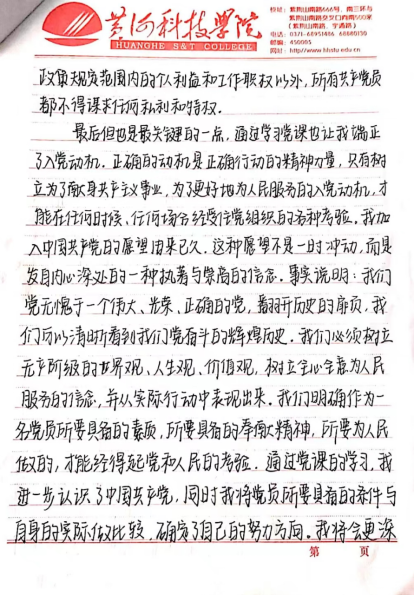 黄河科技学院
HUANGHE S&T COLLEGE
校址：紫荆山南路666号，南三环与
紫荆山南路交叉口西南500米
（紫荆山南路、宇通路）
电话：0371-68951486 68880150
邮编：450005
网址：http://www.hhstu.edu.cn
政策规定范围内的个人利益和工作职权以外，所有共产党员
都不得谋求任何私利和特权。
最后但也是最关键的一点，通过学习党课也让我端正
了入党动机。正确的动机是正确行动的精神力量，只有树
立为了献身共产主义事业，为了更好地为人民服务的入党动机，才
能在任何时候、任何场合经受住党组织的各种考验。我加
入中国共产党的愿望由来已久。这种愿望不是一时冲动，而是
发自内心深处的一种执著与崇高的信念。事实说明：我们
党无愧于一个伟大、光荣、正确的党，翻开历史的扉页，我
们可以清晰看到我们党奋斗的辉煌历史。我们必须树立
无产阶级的世界观、人生观、价值观，树立全心全意为人民
服务的信念，并从实际行动中表现出来。我们明确作为一
名党员所要具备的素质，所要具备的奉献精神，所要为人民
做的，才能经得起党和人民的考验。通过党课的学习，我
进一步认识了中国共产党，同时我将党员所要具备的条件与
自身的实际做比较，确定了自己的努力方向。我将会更深
第 页